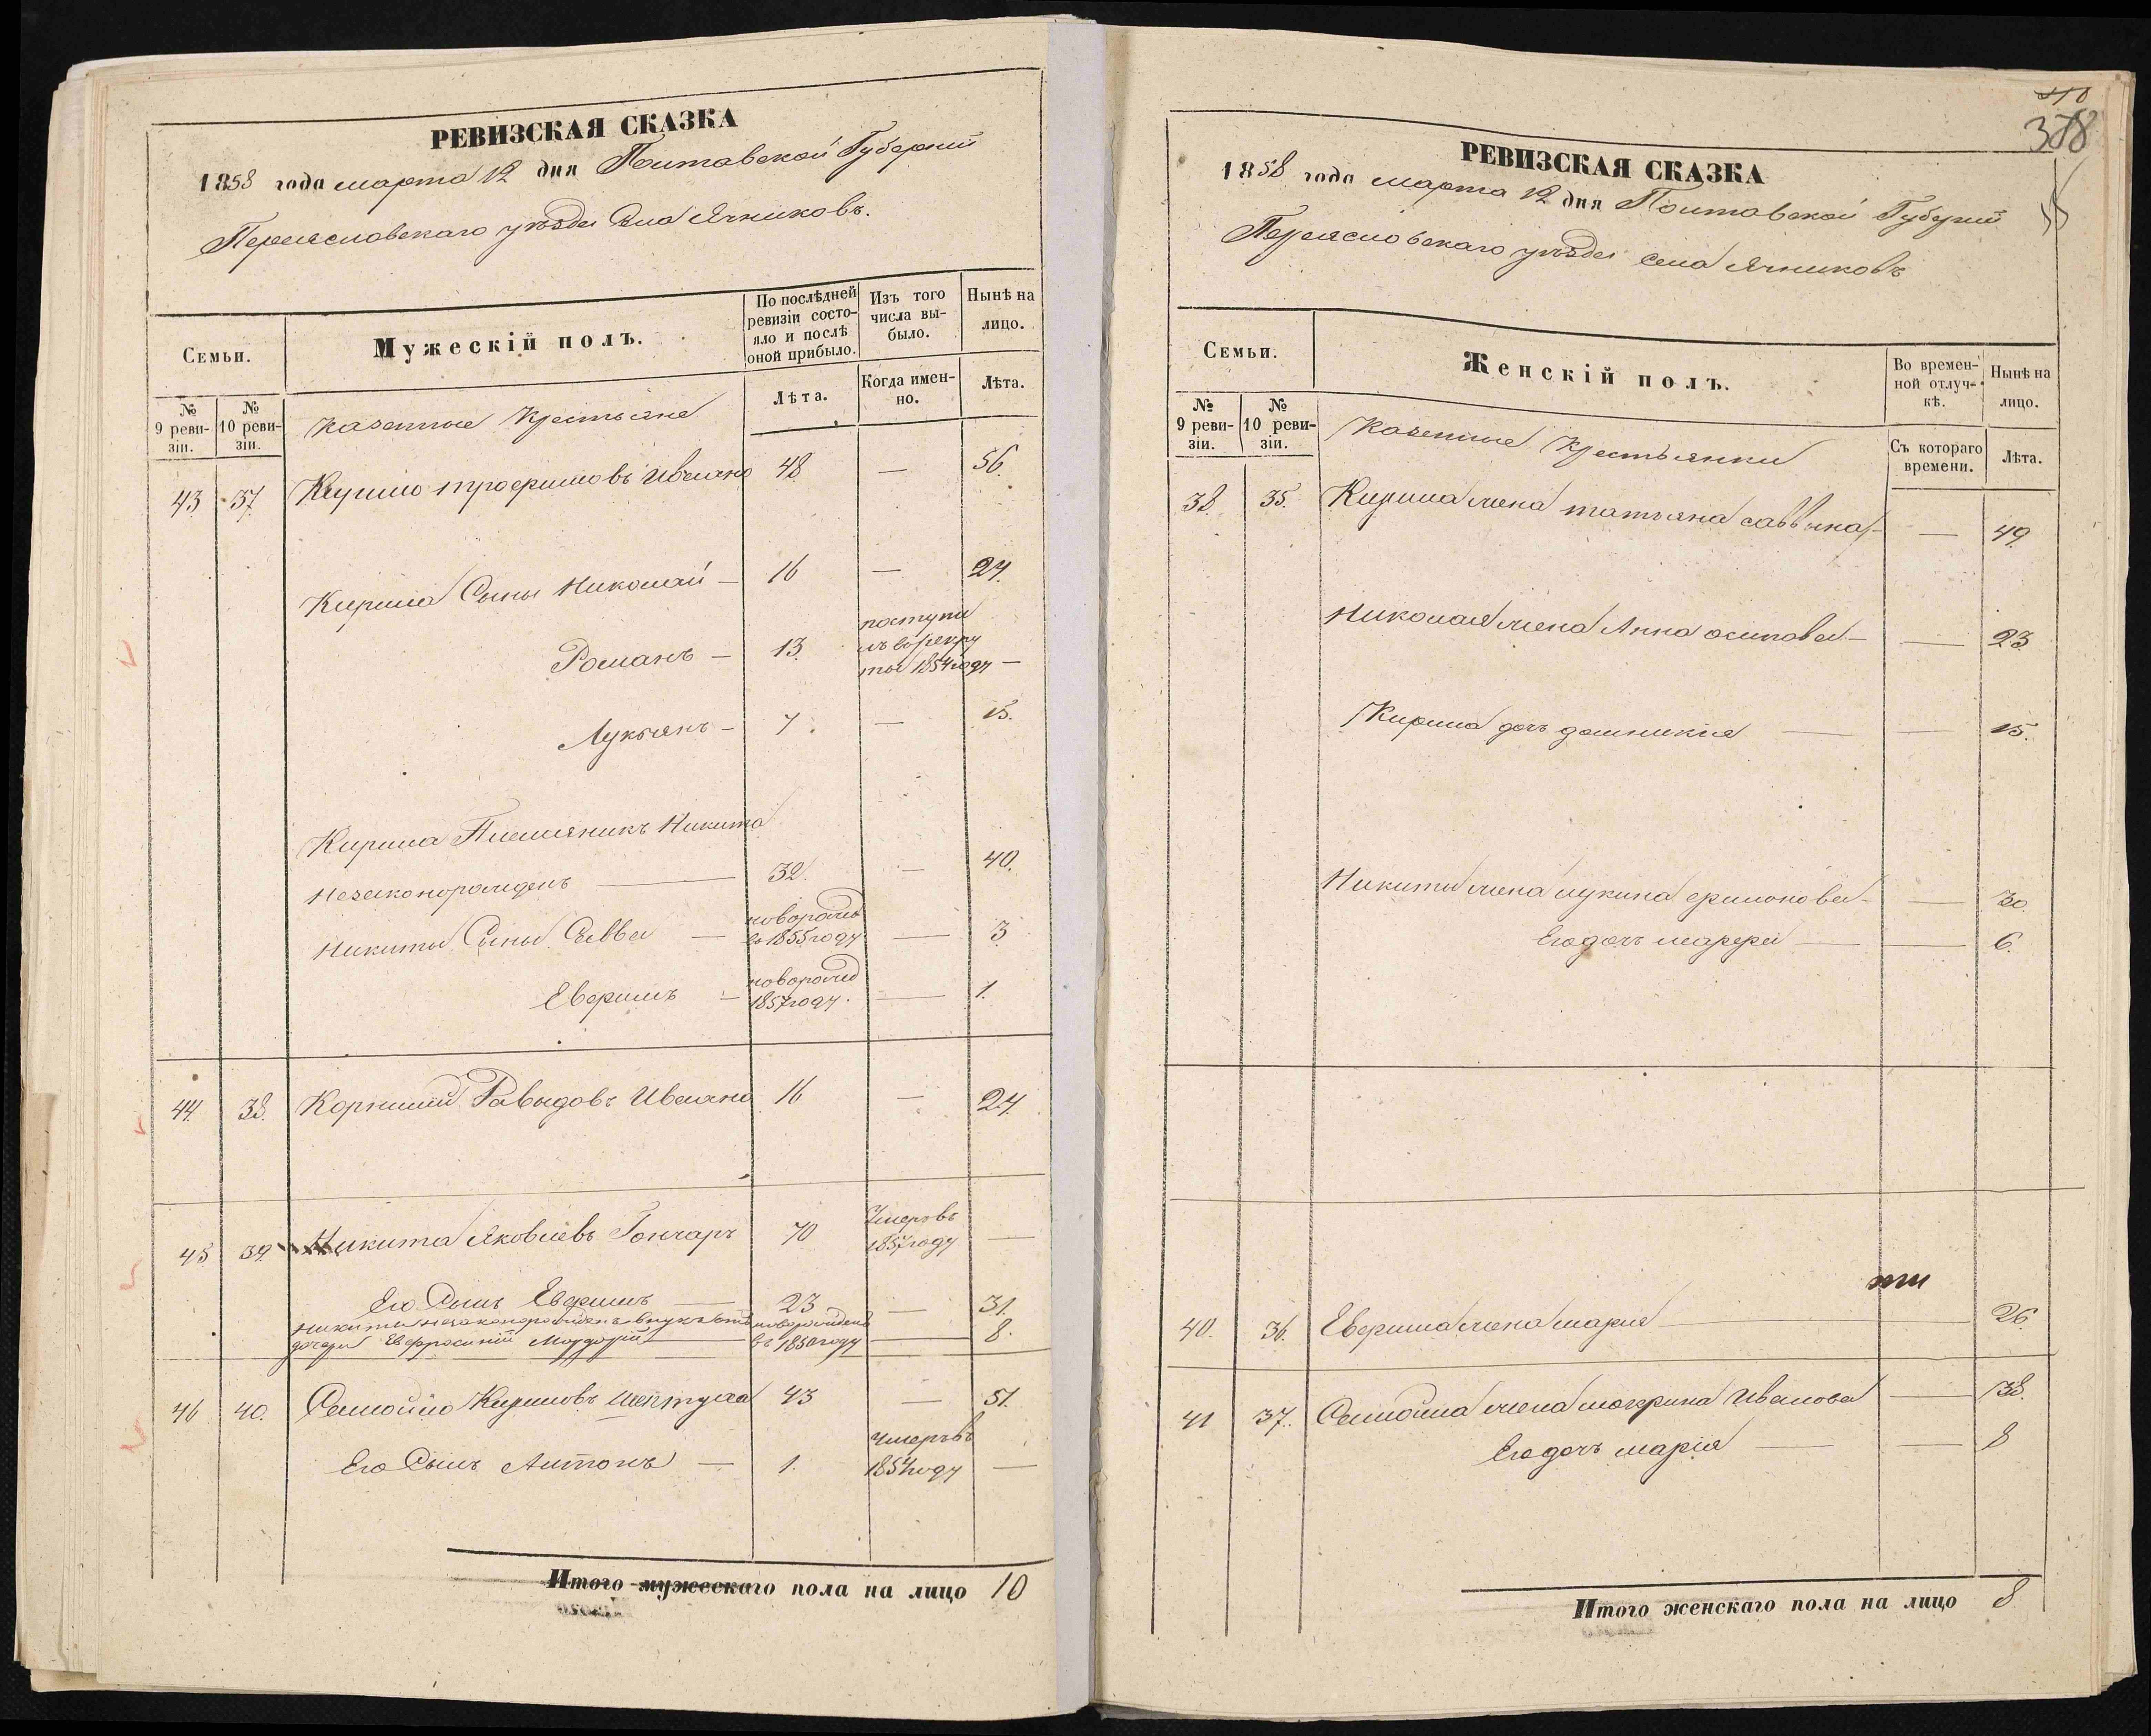 РЕВИЗСКАЯ СКАЗКА
1858 года марта 12 дня Полтавской Губерніи
Переясловскаго уѣзда Села Ячниковъ.
Семьи.
Мужескій полъ.
По послѣдней ревизіи состояло и послѣ оной прибыло.
Изъ того числа выбыло.
Нынѣ на лицо.
№ 9 ревизіи.
№ 10 ревизіи.
Казенные Крестьяне
Лѣта.
Когда именно.
Лѣта.
43 37 Кирило трофимовъ 48 — 56.
Кирила Сыны Николай — 16 — 24.
Романъ — 13. поступилъ въ рекруты 1854 году —
Лукьянъ — 7. — 15.
Кирила Племяникъ Никита
Незаконорожденъ — 32. — 40.
Никиты Сыны Савва — новорожд въ 1855 году — 3.
Евфимъ — новорожд 1857 году. — 1.
44. 38. Корнилий Давыдовъ 16 — 24.
45 39. Никита Яковлевъ Гончаръ 70 Умеръ въ 1857 году —
Его Сынъ Евфимъ — 23 — 31.
Никиты незаконорожденъ внукъ отъ новорожденъ
дочери Евфросиніи въ 1850 году — 8.
46 40. Самойло Кириловъ Шептуха 43 — 51.
Его Сынъ Антонъ — 1. умеръ въ 1854 году —
Итого мужескаго пола на лицо 10
378
РЕВИЗСКАЯ СКАЗКА
1858 года марта 12 дня Полтавской Губерніи
Переясловскаго уѣзда села Ячниковъ
Семьи.
Женскій полъ.
Во временной отлучкѣ.
Нынѣ на лицо.
№ 9 ревизіи.
№ 10 ревизіи.
Казенные Крестьянки
Съ котораго времени.
Лѣта.
38. 35. Кирила жена татьяна саввина — — 49.
Николая жена Анна осипова — — 23
Кирила дочь домникия — — 15.
Никиты жена лукина — — 30.
Его дочь марфа — — 6.
40. 36. Евфима жена мария — 26.
41 37. Самойла жена мокрина Иванова — 38.
Его дочь марія — — 8
Итого женскаго пола на лицо 8